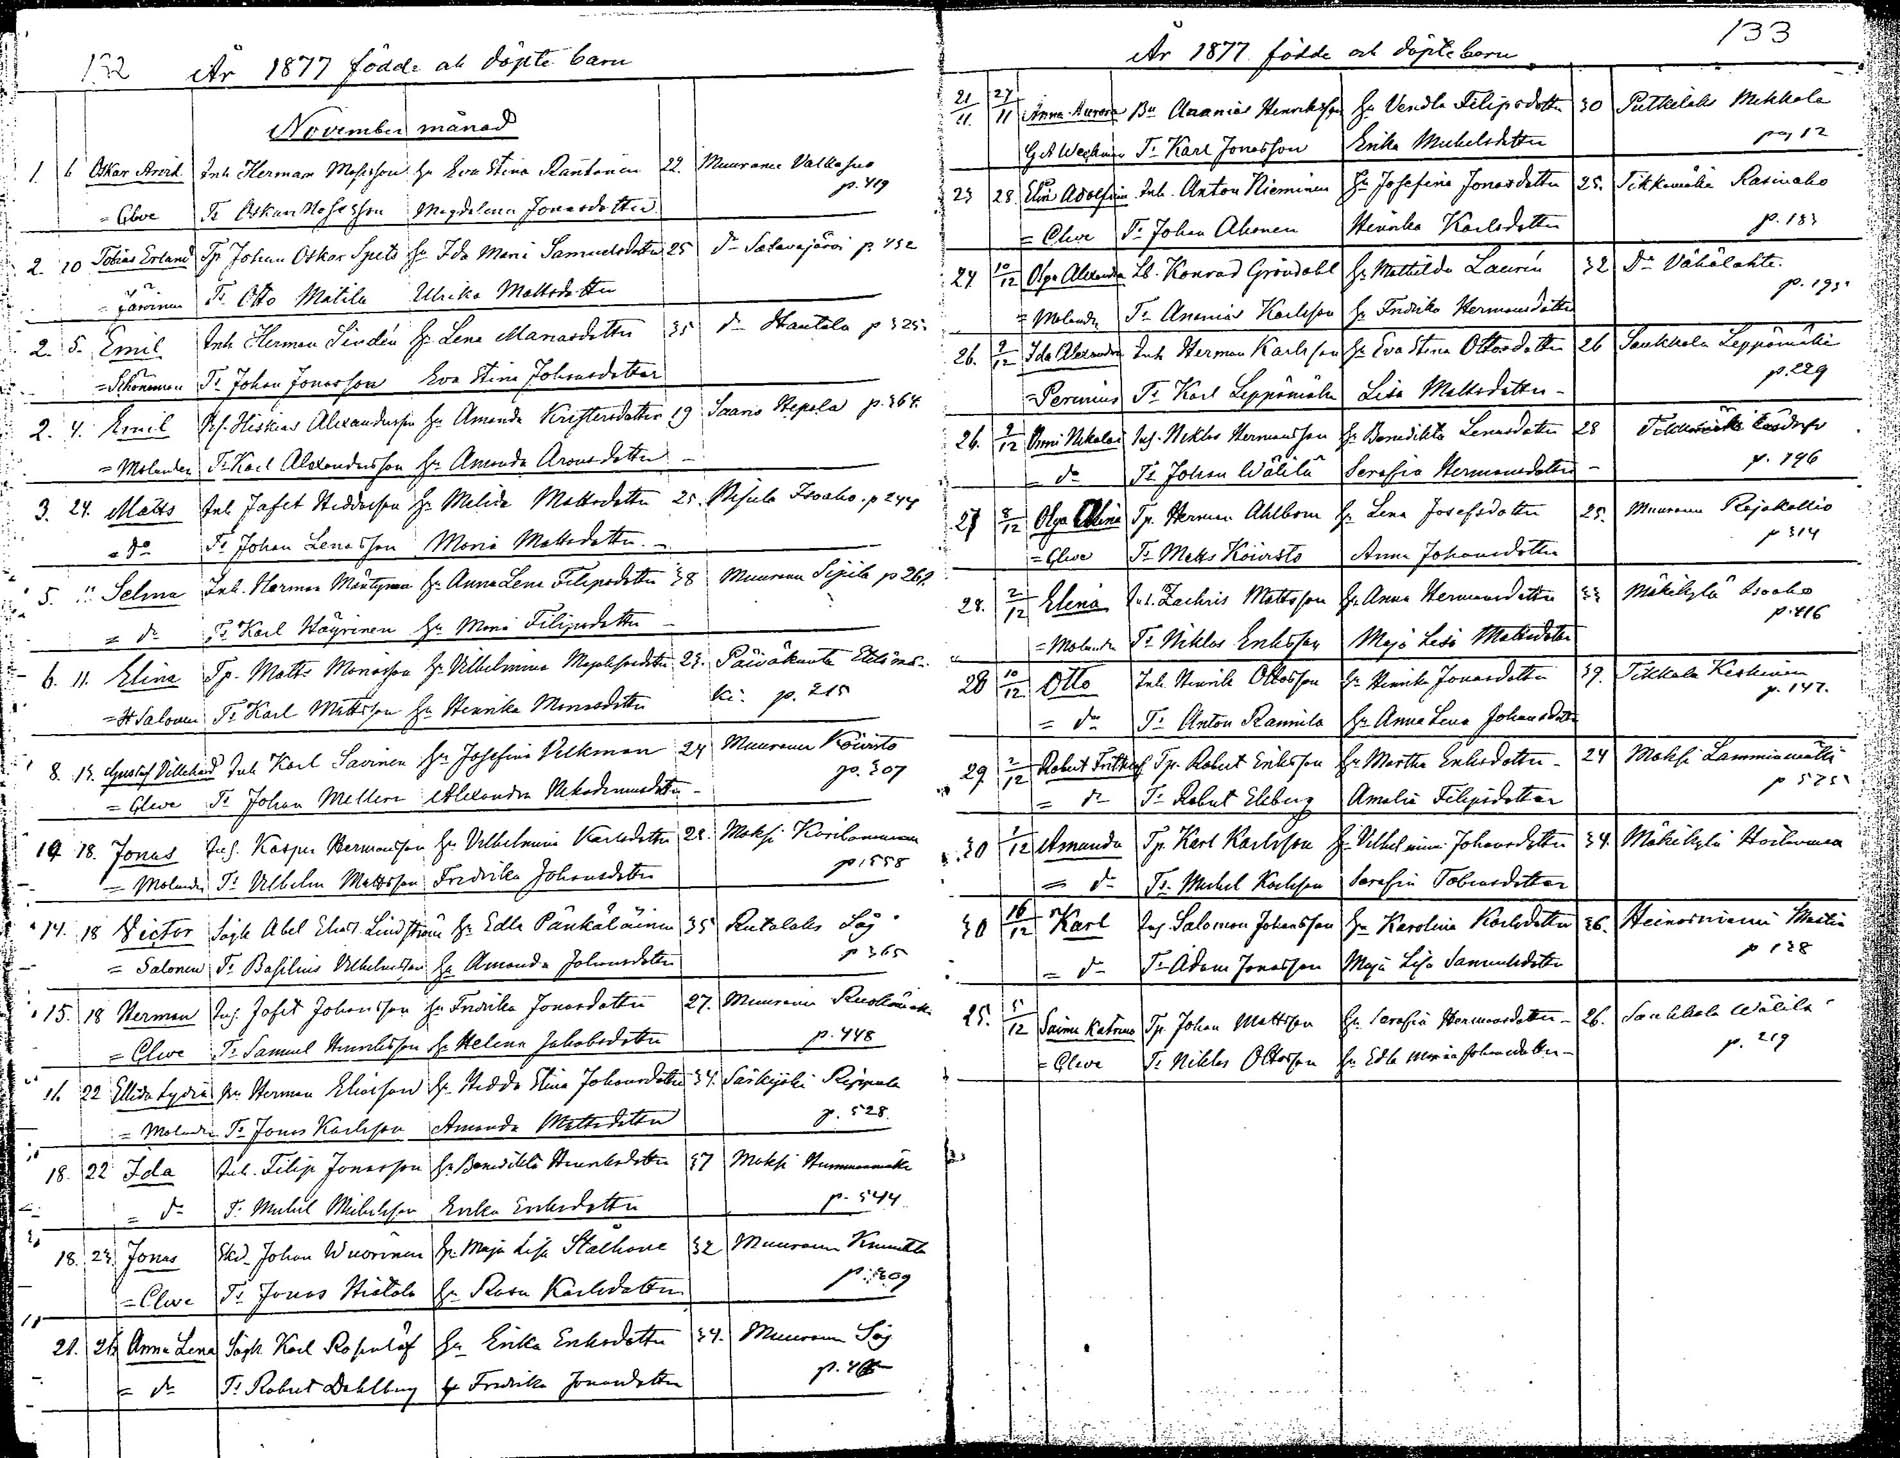 132 År 1877 födde och döpte barn
November månad
1. 6 Oskar Arvid Inh Herman Mosesson Hu Eva Stina Rantanen 22. Muurame Valkasuo
p. 419
= Cleve Tr Oskar Mosesson Magdalena Jonasdotter
2. 10 Tobias Erland Tp Johan Oskar Spets Hu Ida Maria Samuelsdotter 25 do Satavajärvi p. 452
= Järvinen Tr Otto Matila Ulrika Mattsdotter
2. 5. Emil Inh Herman Lindén Hu Lena Manasdotter 35 do Hautala p 325
= Schöneman Tr Johan Jonasson Eva Stina Johansdotter
2. 4. Emil Hiskias Alexandersson Hu Amanda Kristersdotter 19 Saaris Hepola p. 364.
= Molander Tr Karl Alexandersson Hu Amanda Aronsdotter
3. 24. Matts Inh Jafet Heddersson Hu Melida Mattsdotter 25. Isoaho p 244
= do Tr Johan Lenasson Maria Mattsdotter
5. 11 Selma Inh. Herman Mäntynen Hu Anna Lena Filipsdotter 38 Muurame Sipila p 262
= do Tr Karl Häyrinen Hu Maria Filipsdotter
6. 11. Elina Tp. Matts Monasson Hu Vilhelmina 23. Päiväkunta Etelämä-
ki p. 215
= H Salonen Tr Karl Mattsson Hu Henrika Monasdotter
8. 13. Gustaf Villehard Inh Karl Savinen Hu Josefina Velkman 24 Muurame Koivisto
p. 307
= Cleve Tr Johan Mellera Alexandra Nikodemusdotter
10 18. Jonas Inh. Kasper Hermansson Hu Vilhelmina Karlsdotter 28. Moksi Korilammen
p 558
= Molander Tr Vilhelm Mattsson Fredrika Johansdotter
14. 18 Victor Sågk Abel Elias Lindström Hu Edla Pänkäläinen 35 Rutalaks Såg
p 365
= Salonen Tr Basilius Vilhelmsson Hu Amanda Johansdotter
15. 18 Herman Inh. Jafet Johansson Hu Fredrika Jonasdotter 27. Muurame Ruokomäki
p. 448
= Cleve Tr Samuel Henriksson Hu Helena Jakobsdotter
16 22 Ellida Lydia Bn Herman Eliasson Hu Hedda Stina Johansdotter 34. Särkijoki Riippula
p. 528.
= Molander Tr Jonas Karlsson Amanda Mattsdotter
18. 22 Ida Inh. Filip Jonasson Hu Benedikta Henriksdotter 37 Moksi Hummanmäki
p. 544
= do Tr Mickel Mickelsson Erika Eriksdotter
18. 23 Jonas Skd. Johan Wuorinen Hu Maja Lisa Stålhane 32 Muurame Kinnula
p. 309
= Cleve Tr Jonas Hietala Hu Rosa Karlsdotter
21. 26 Anna Lena Sågk Karl Rosenlöf Hu Erika Eriksdotter 34. Muurame Såg
p. 46
= do Tr Robert Dahlberg Hu Fredrika Jonasdotter
133
År 1877 födde och döpte barn
21/11 27/11 Anna Aurora Bn Ananias Henriksson Hu Vendla Filipsdotter 30 Putkilaks Mikkola
pag 12
G A Weckman Tr Karl Jonasson Erika Mickelsdotter
23 28. Elin Adolfina Inh. Anton Nieminen Hu Josefina Jonasdotter 25. Tikkamäki Rasinaho
p. 183
= Cleve Tr Johan Ahonen Henrika Karlsdotter
24 10/12 Olga Alexandra Lb. Konrad Gröndahl Hu Mathilda Laurén 32 Do Vähälahti.
p. 193
= Molander Tr Ananias Karlsson Hu Fredrika Hermansdotter
26. 2/12 Ida Alexandra Inh Herman Karlsson Hu Eva Stina Ottosdotter 26 Saukkola Leppämäki
p. 229
= Perenius Tr Karl Leppämäki Lisa Mattsdotter
26. 2/12 Onni Nikolai Inh. Niklas Hermansson Hu Benedikta Lenasdotter 28
p. 196
= do Tr Johan Wälilä Serafia Hermansdotter
27 8/12 Olga Alina Tp. Herman Ahlbom Hu Lena Josefsdotter 25. Muurame Rajakallio
p 314
= Cleve Tr Matts Koivisto Anna Johansdotter
28. 2/12 Elena Inh. Zachris Mattsson Hu Anna Hermansdotter 33 Mäkikylä Isoaho
p. 416
= Molander Tr Niklas Eriksson Maja Lisa Mattsdotter
28 10/12 Otto Inh Henrik Ottosson Hu Henrika Jonasdotter 39. Tikkala Keskinen
p. 147.
= do Tr Anton Rannila Hu Anna Lena Johansdotter
29 2/12 Robert Fritkof Tp. Robert Eriksson Hu Martha Eriksdotter 24 Moksi Lamminmäki
p 575
= do Tr Robert Ekberg Amalia Filipsdotter
30 1/12 Amanda Tp. Karl Karlsson Hu Vilhelmina Johansdotter 34. Mäkikylä
= do Tr. Mickel Karlsson Serafia Tobiasdotter
30 16/12 Karl Inh. Salomon Johansson Hu Karolina Karlsdotter 36. Heinosniemi Mattila
p 138
= do Tr Adam Jonasson Maja Lisa Samuelsdotter
25. 5/12 Saima Katrina Tp. Johan Mattsson Hu Serafia Hermansdotter 26. Saukkola Wälilä
p. 219
= Cleve Tr Niklas Ottosson Hu Edla Maria Johansdotter